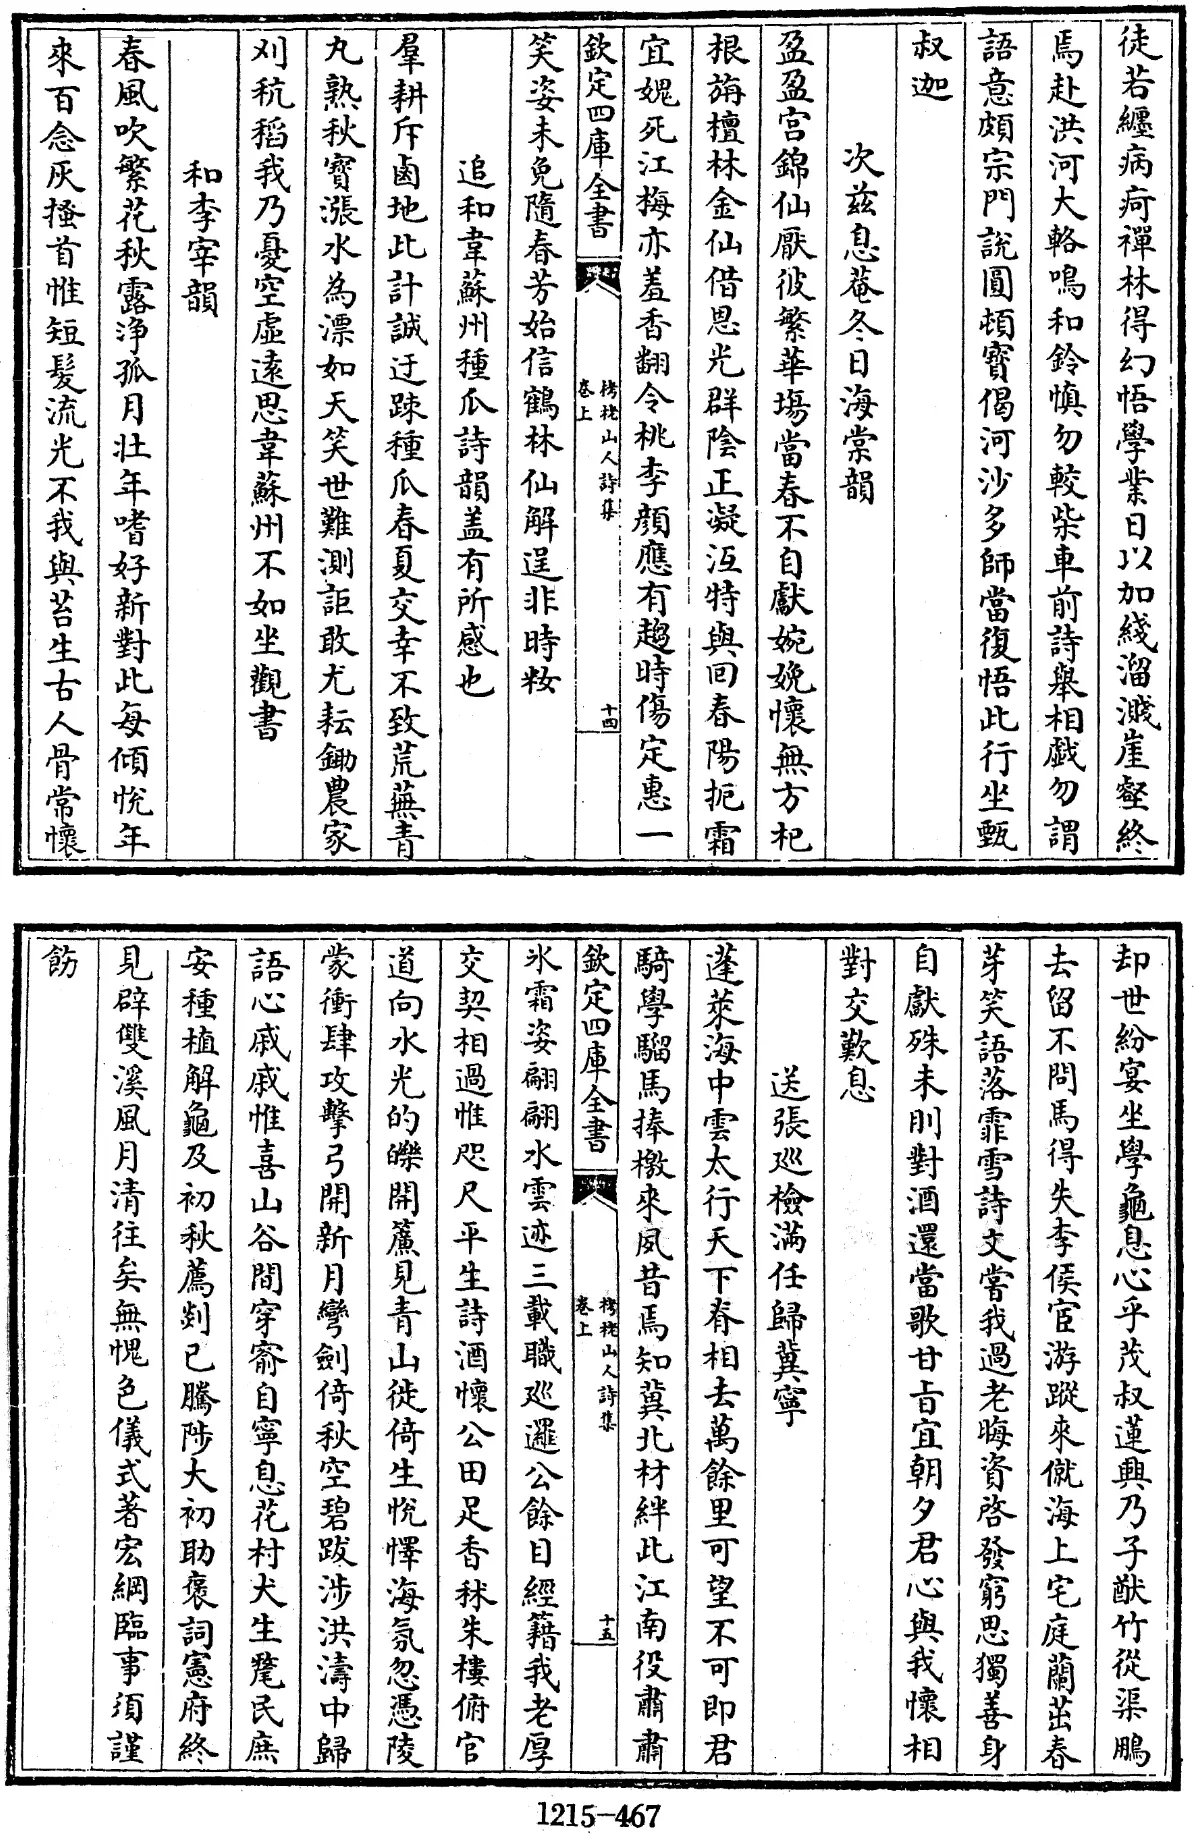 徒若纒病疴禪林得幻悟學業日以加綫溜濺崖壑終
焉赴洪河大輅鳴和鈴慎勿較柴車前詩舉相戯勿謂
語意頗宗門說圓頓寳偈河沙多師當復悟此行坐甄
叔迦
次兹息菴冬日海棠韻
盈盈宫錦仙厭彼繁華塲當春不自獻婉娩懷無方杞
根旃檀林金仙借恩光群陰正凝沍特與回春陽扼霜
宜媿死江梅亦羞香翻令桃李顔應有趨時傷定惠一
欽定四庫全書
栲栳山人詩集
卷上
十四
笑姿未免隨春芳始信鶴林仙解逞非時粧
追和韋蘇州種瓜詩韻盖有所感也
羣耕斥鹵地此計誠迂踈種瓜春夏交幸不致荒蕪青
丸熟秋寳漲水為漂如天笑世難測詎敢尤耘鋤農家
刈秔稻我乃憂空虛遠思韋蘇州不如坐觀書
和李宰韻
春風吹繁花秋露浄孤月壯年嗜好新對此每傾悅年
來百念灰搔首惟短髮流光不我與苔生古人骨常懷
却世紛宴坐學龜息心乎茂叔蓮興乃子猷竹從渠鵬
去留不問馬得失李侯宦游蹤來僦海上宅庭蘭茁春
芽笑語落霏雪詩文嘗我過老晦資啓發窮思獨善身
自獻殊未刖對酒還當歌甘旨宜朝夕君心與我懷相
對交歎息
送張巡檢滿任歸冀寧
蓬萊海中雲太行天下脊相去萬餘里可望不可即君
騎學騮馬捧檄來夙昔焉知冀北材絆此江南役肅肅
欽定四庫全書
栲栳山人詩集
卷上
十五
氷霜姿翩翩水雲迹三載職巡邏公餘目經籍我老厚
交契相過惟咫尺平生詩酒懷公田足香秫朱樓俯官
道向水光的皪開簾見青山徙倚生悅懌海氛忽憑陵
蒙衝肆攻擊弓開新月彎劍倚秋空碧跋涉洪濤中歸
語心戚戚惟喜山谷間穿窬自寧息花村犬生氂民庶
安種植解龜及初秋薦剡已騰陟大初助褒詞憲府終
見辟雙溪風月清往矣無愧色儀式著宏綱臨事須謹
飭
1215-467